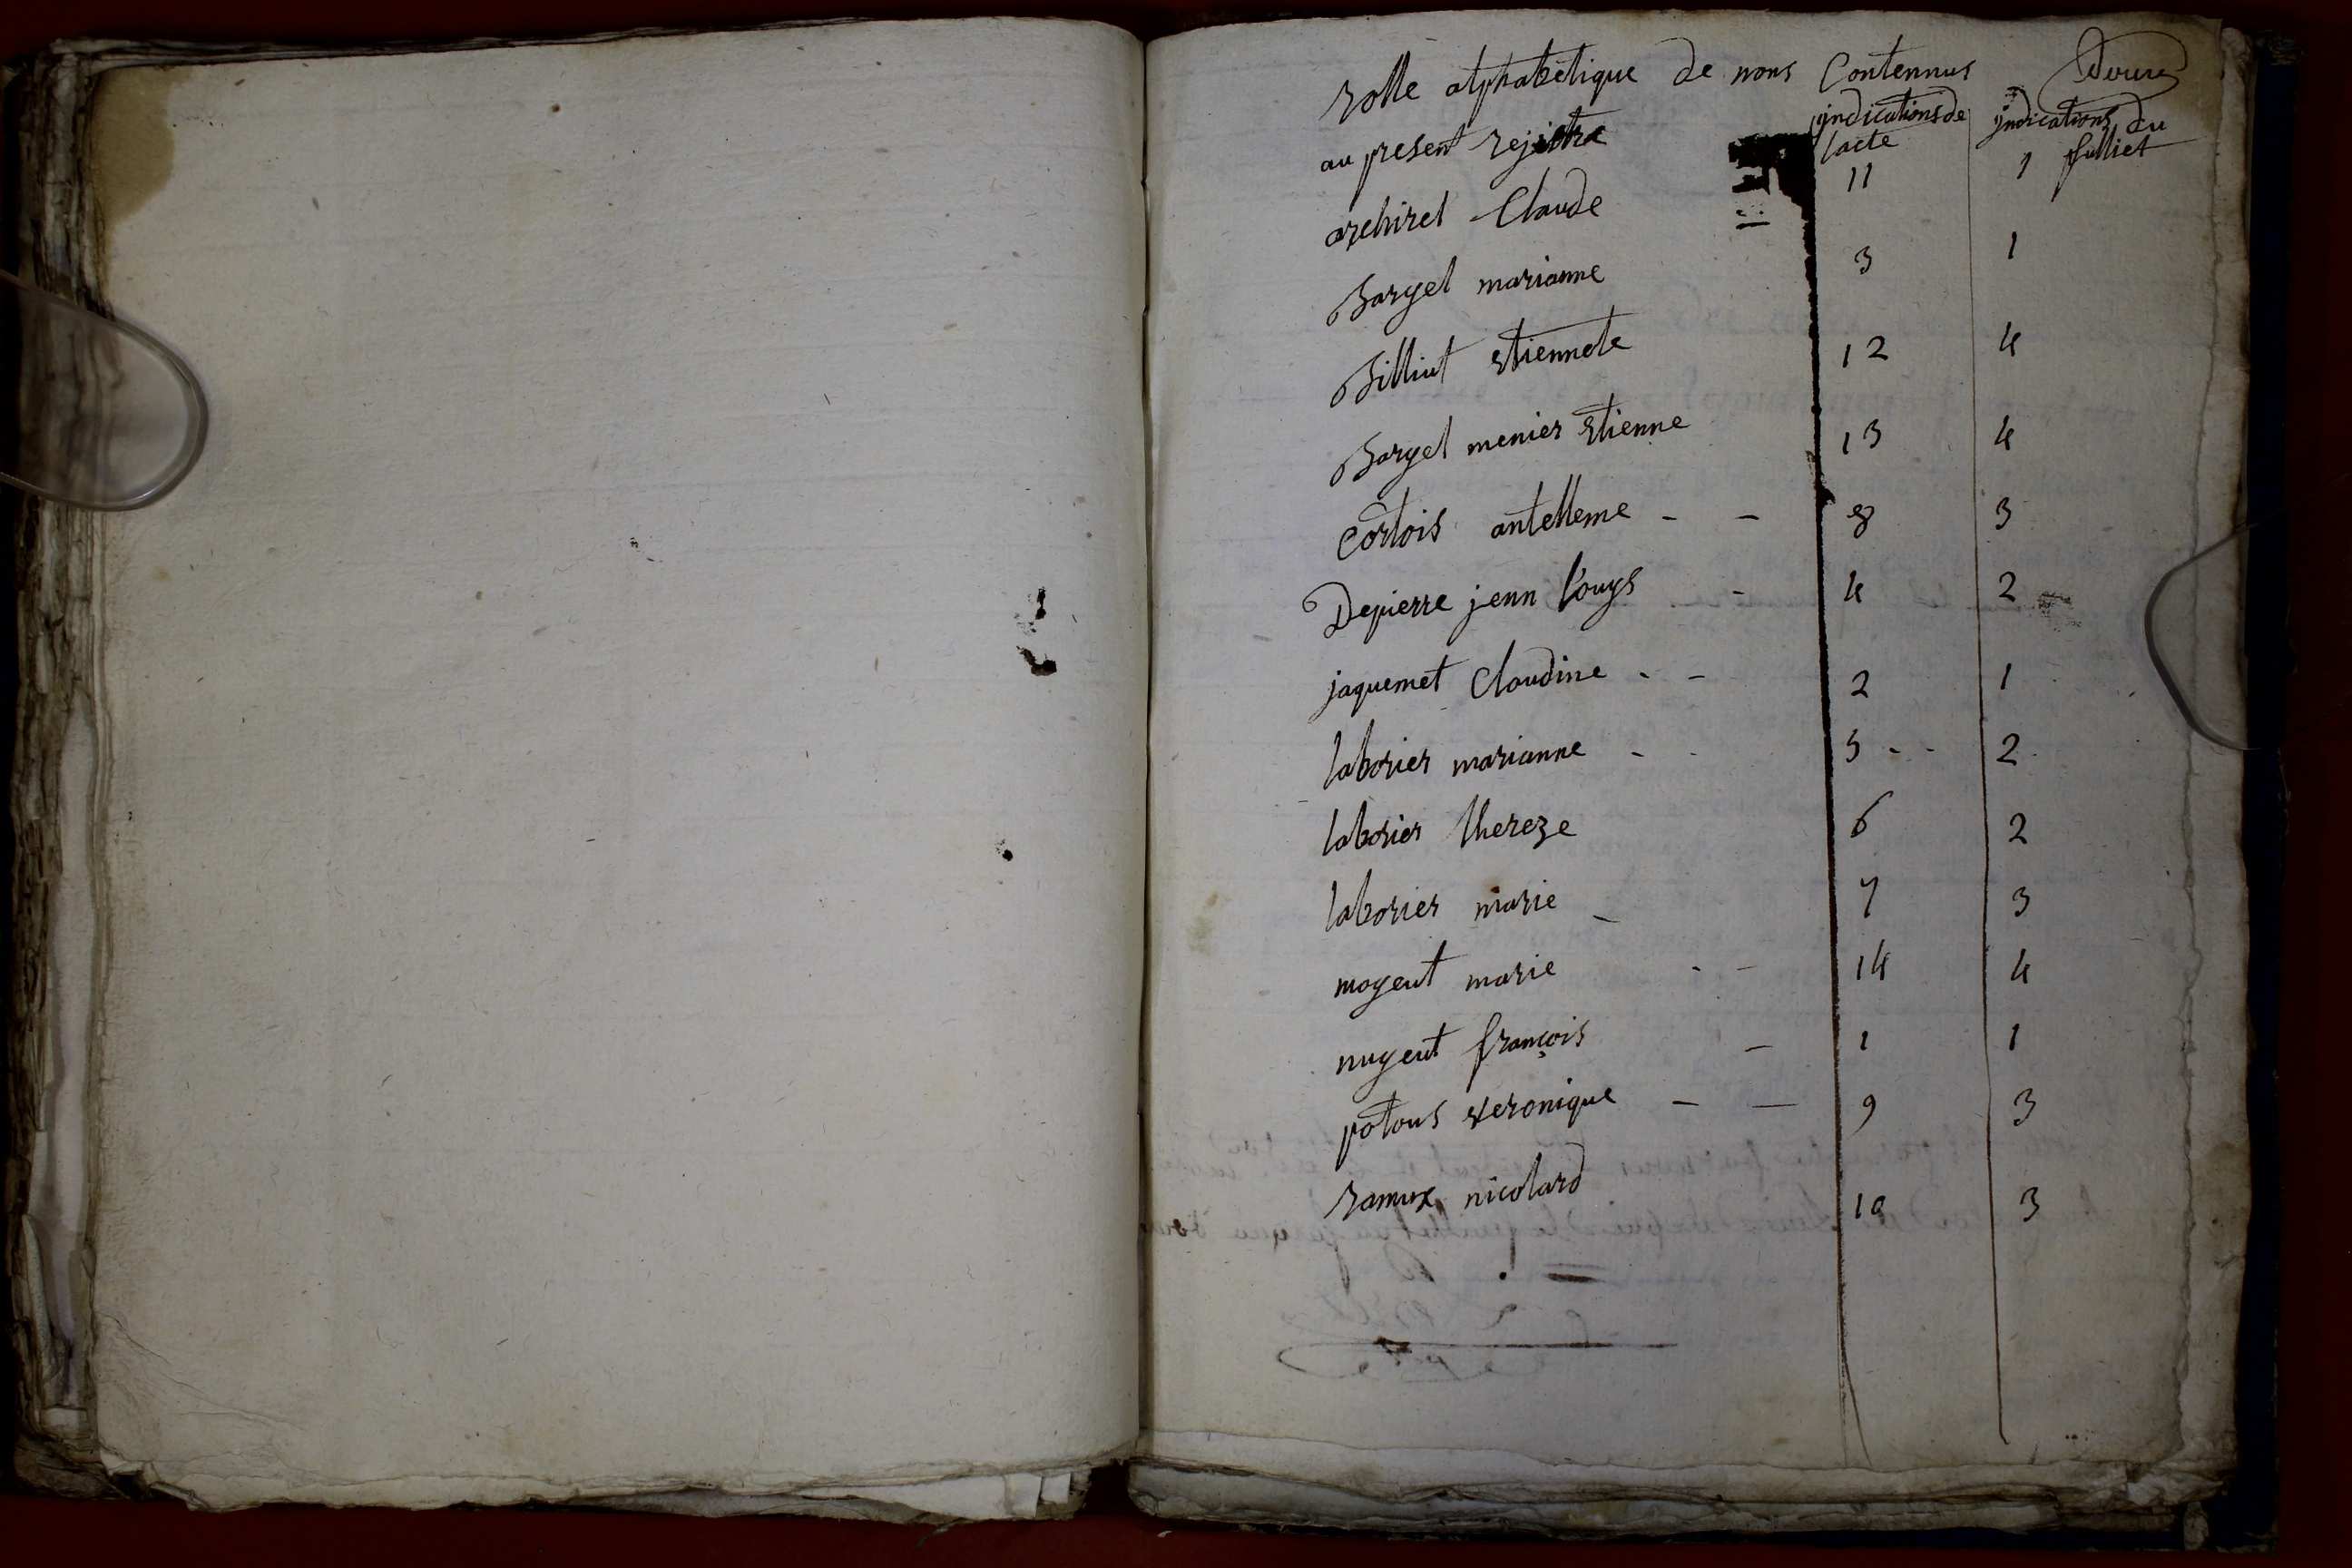 rolle alphabétique de nons Contennus
au present rejistre
yndications de lacte
yndications du fulliet
archirel Claude 11 1
Bargel marianne 3 1
Billiut Etiennete 12 4
Bargel menier Etienne 13 4
Cortois antelleme - - 8 3
Depierre jenn louys - 4 2
jaquemet Claudine - - 2 1
laborier marianne - - 5 - - 2
laborier thereze 6 2
laborier marie - 7 3
mogeut marie - - 14 4
nugeut françois - 1 1
potous veronique - - 9 3
ramux nicolard 10 3